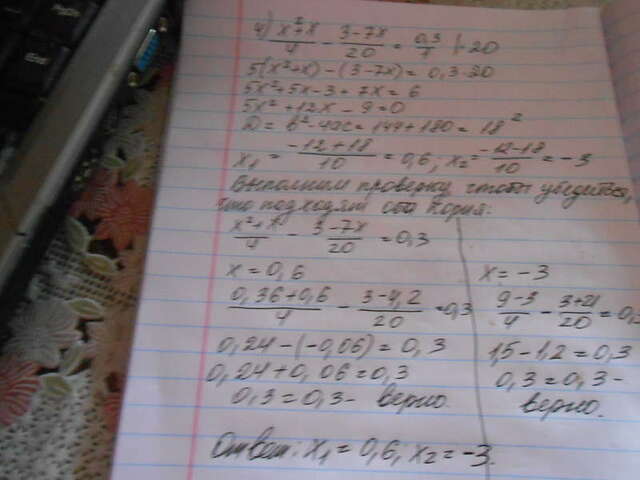 4) (x²+x)/4 - (3-7x)/20 = 0,3/1 |·20
5(x²+x) - (3-7x) = 0,3·20
5x²+5x-3+7x = 6
5x²+12x-9=0
D = b²-4ac = 144+180 = 18²
x₁ = (-12+18)/10 = 0,6; x₂ = (-12-18)/10 = -3
Выполним проверку чтобы убедиться,
что подходят оба корня:
(x²+x)/4 - (3-7x)/20 = 0,3
x = 0,6
(0,36+0,6)/4 - (3-4,2)/20 = 0,3
0,24-(-0,06) = 0,3
0,24+0,06=0,3
0,3=0,3- верно.
x = -3
(9-3)/4 - (3+21)/20 = 0,3
1,5-1,2=0,3
0,3=0,3-
верно.
Ответ: x₁ = 0,6, x₂ = -3.